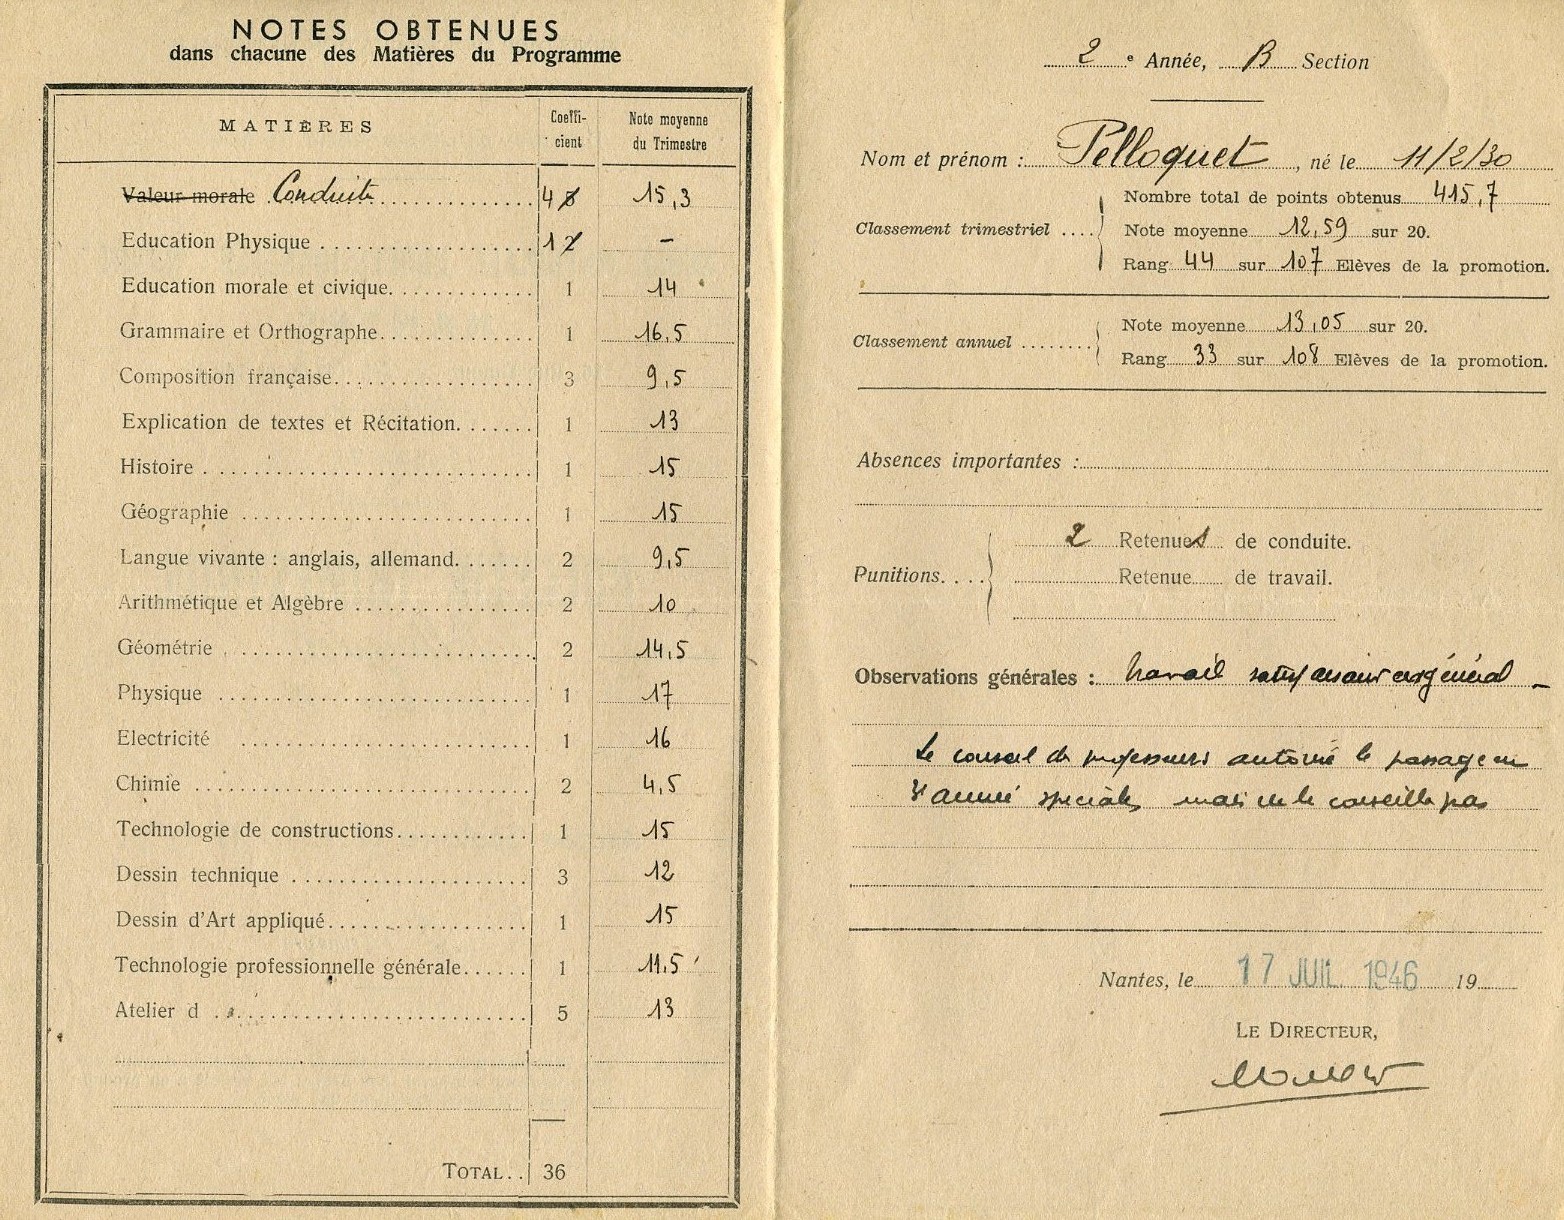 NOTES OBTENUES
dans chacune des Matières du Programme
MATIÈRES Coeffi-cient Note moyenne du Trimestre
Valeur morale Conduite 4 15,3
Education Physique 1 2 –
Education morale et civique 1 14
Grammaire et Orthographe 1 16,5
Composition française 3 9,5
Explication de textes et Récitation 1 13
Histoire 1 15
Géographie 1 15
Langue vivante : anglais, allemand 2 9,5
Arithmétique et Algèbre 2 10
Géométrie 2 14,5
Physique 1 17
Electricité 1 16
Chimie 2 4,5
Technologie de constructions 1 15
Dessin technique 3 12
Dessin d'Art appliqué 1 15
Technologie professionnelle générale 1 11,5
Atelier d 5 13
TOTAL 36
2e Année, B Section
Nom et prénom : Pelloquet, né le 11/2/30
Nombre total de points obtenus 415,7
Classement trimestriel Note moyenne 12,59 sur 20.
Rang 44 sur 107 Elèves de la promotion.
Note moyenne 13,05 sur 20.
Classement annuel
Rang 33 sur 108 Elèves de la promotion.
Absences importantes :
2 Retenues de conduite.
Punitions
Retenue de travail.
Observations générales : travail satisfaisant en général –
Le conseil de professeurs autorise le passage en
3e année spéciale mais ne le conseille pas
Nantes, le 17 JUIL 1946 19
LE DIRECTEUR,